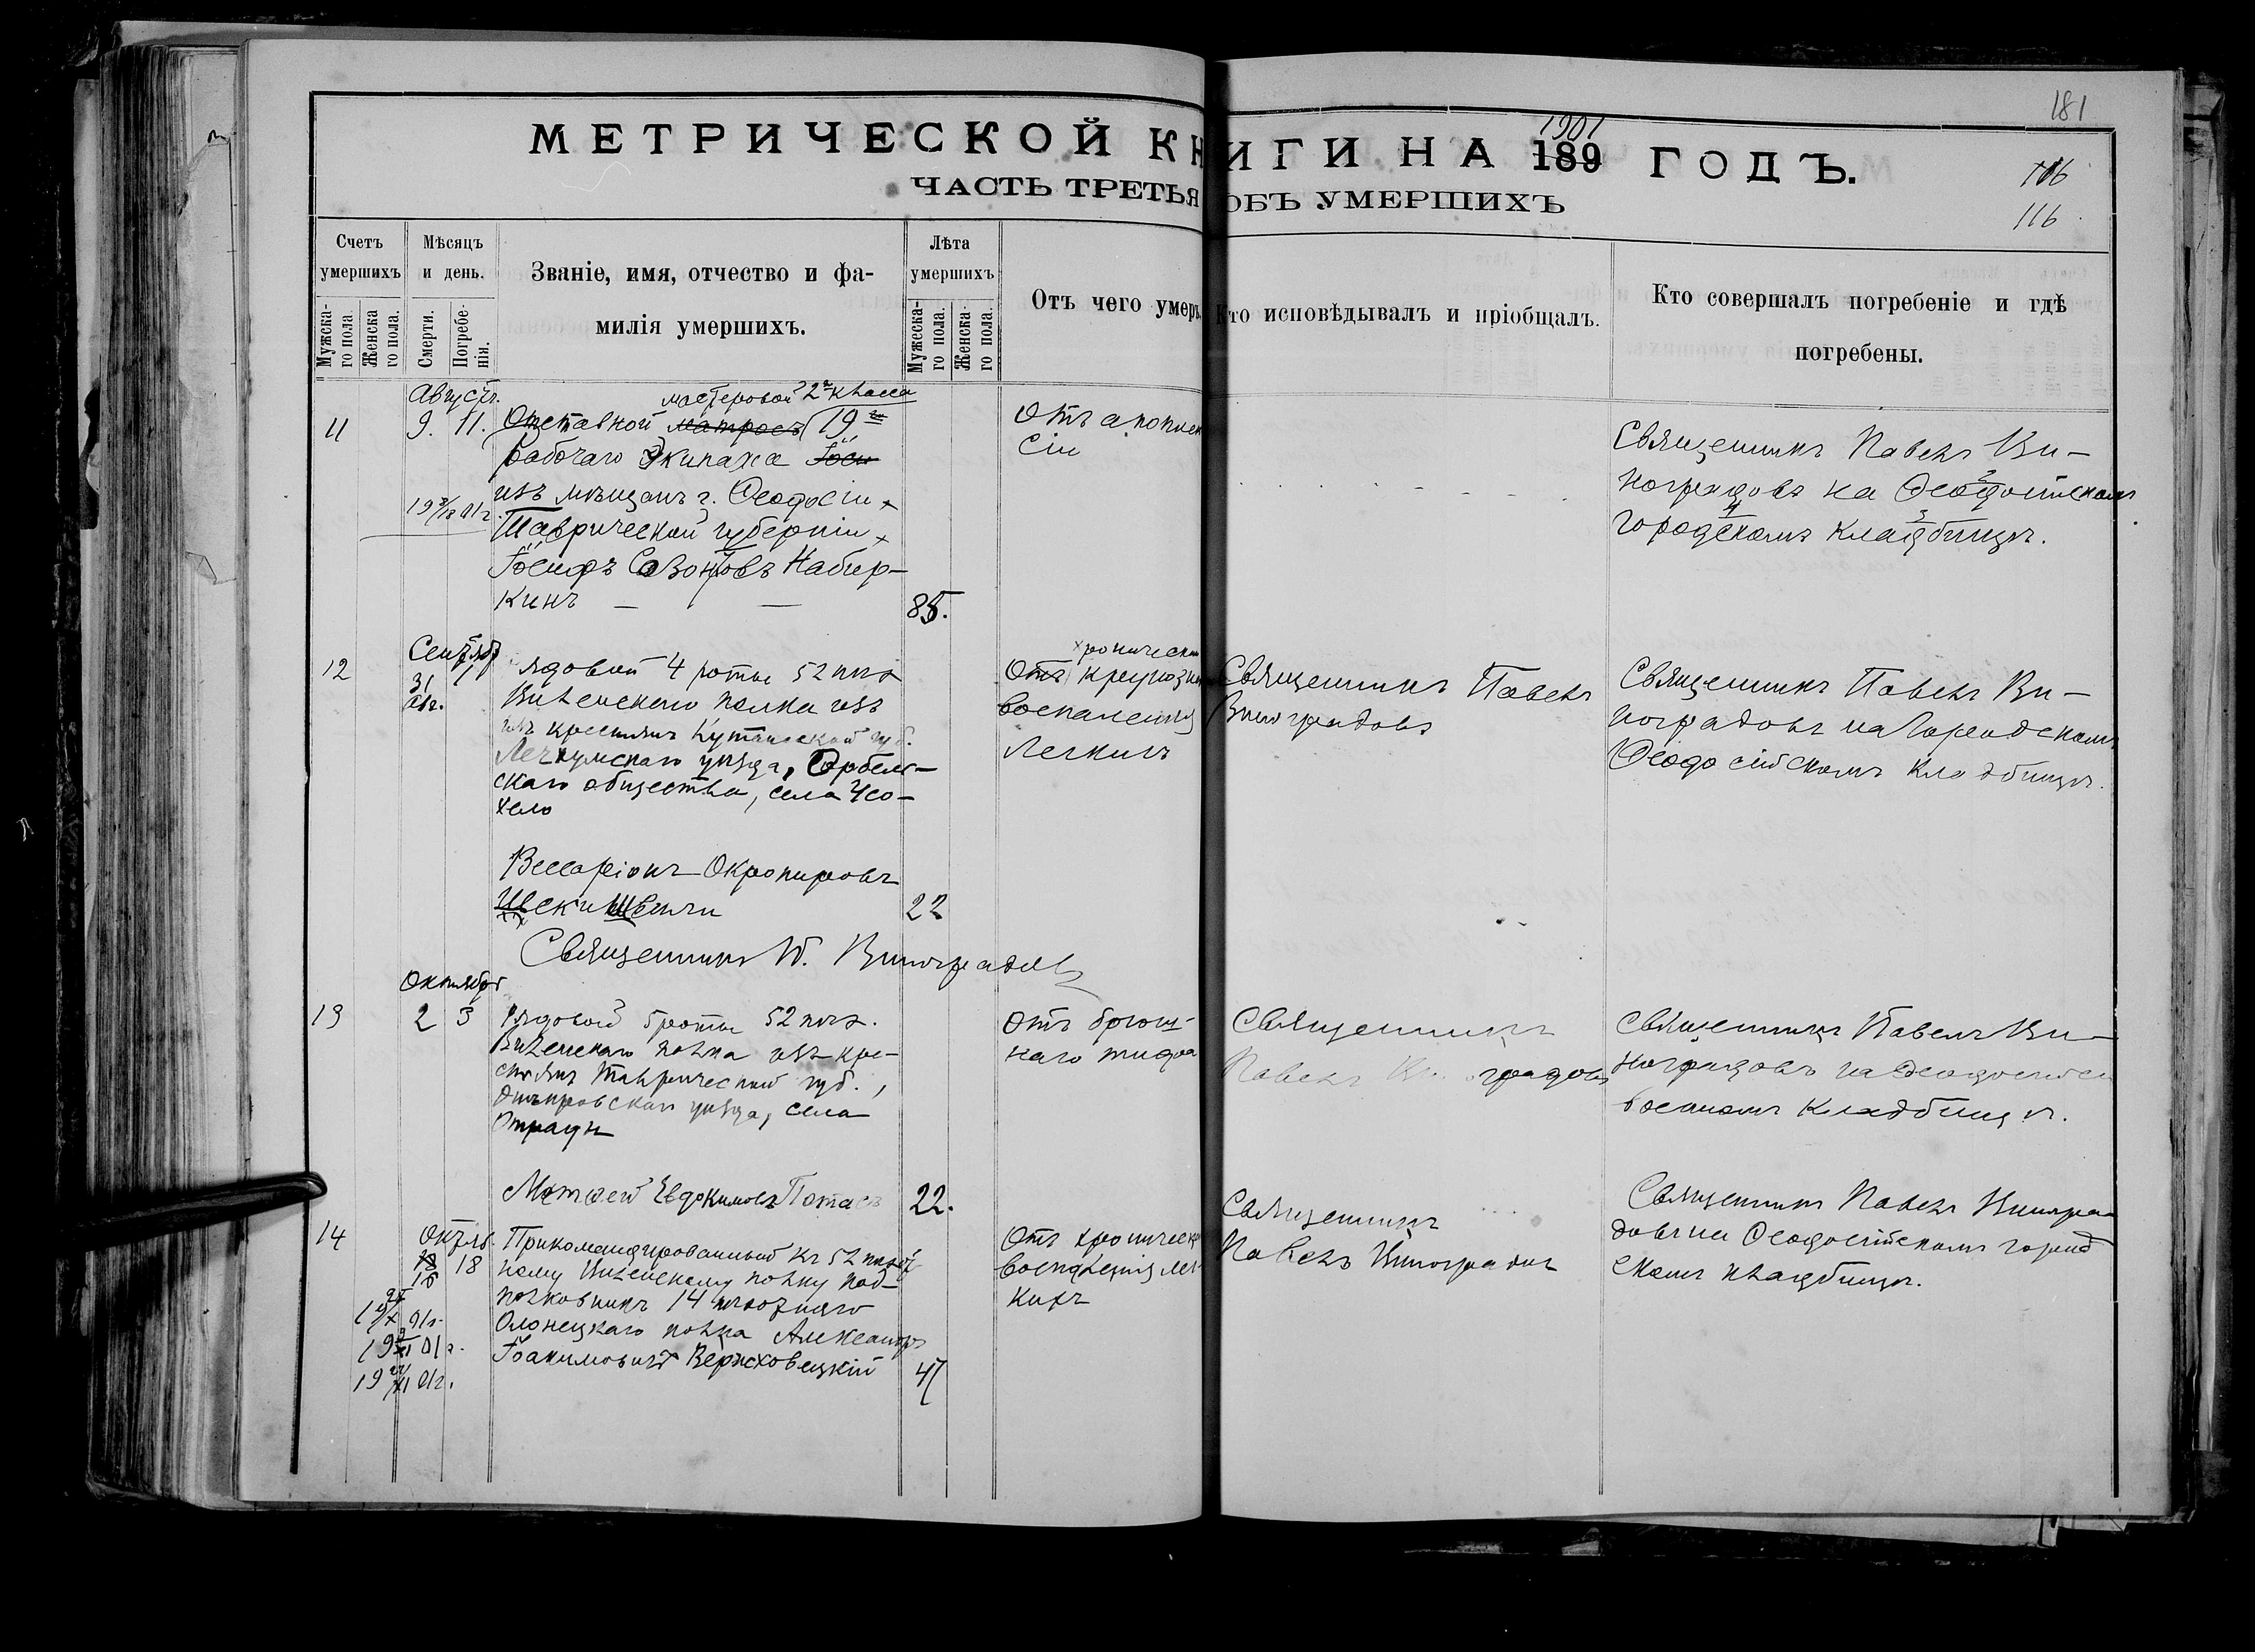 181
МЕТРИЧЕСКОЙ КНИГИ НА 189 1901 ГОДЪ.
106
116
ЧАСТЬ ТРЕТЬЯ ОБЪ УМЕРШИХЪ
Счетъ умершихъ
Мужска-го пола.
Женска го пола.
Мѣсяцъ и день.
Смерти.
Погребе-нія.
Званіе, имя, отчество и фа-
милія умершихъ.
Лѣта умершихъ
Мужеска-го пола.
Женска-го пола.
Отъ чего умеръ.
Кто исповѣдывалъ и пріобщалъ.
Кто совершалъ погребеніе и гдѣ
погребены.
Августъ.
11
9. 11.
мастеровой 2го класса
Отставной матросъ 19го
рабочаго Экипажа Іоси
изъ мѣщанъ г. Ѳеодосіи
Таврической губерніи
Іосифъ Созонтовъ Набир-
кинъ
85.
Отъ апоплек
сіи
Священникъ Павелъ Ви-
ноградовъ на Ѳеодосійскомъ
городскомъ кладбищѣ.
Сентябр
12
31 1
Авг.
Рядовой 4 роты 52 пѣх
Виленскаго полка изъ
изъ крестьянъ Кутаисской губ.
Лечхумскаго уѣзда, Орбель-
скаго общества, села Чсо-
хело
Виссаріонъ Окропировъ
Цескишвили
22
хроническа
Отъ крупозна
воспаленія
Легкихъ
Священникъ Павелъ
Виноградовъ
Священникъ Павелъ Ви-
ноградовъ на Городскомъ
Ѳеодосійскомъ кладбищѣ.
Священникъ П. Виноградовъ
Октября
13
2 3
Рядовой 5 роты 52 пѣх.
Виленскаго полка изъ кре-
стьянъ Таврической губ.,
Днѣпровскаго уѣзда, села
Отрады
Матвей Евдокимовъ Потасъ
22.
Отъ брюш-
наго тифа
Священникъ
Павелъ Виноградовъ
Священникъ Павелъ Ви-
ноградовъ на Ѳеодосійск
военномъ кладбищѣ.
14
Октяб.
18
16
Прикомандированный къ 52 пѣхот
ному Виленскому полку под-
полковникъ 14 пѣхотнаго
Олонецкаго полка Александръ
Іоакимовичъ Вержховецкій
47
Отъ хроническа
воспаленія лег
кихъ
Священникъ
Павелъ Виноградовъ
Священникъ Павелъ Виногра
довъ на Ѳеодосійскомъ город
скомъ кладбищѣ.